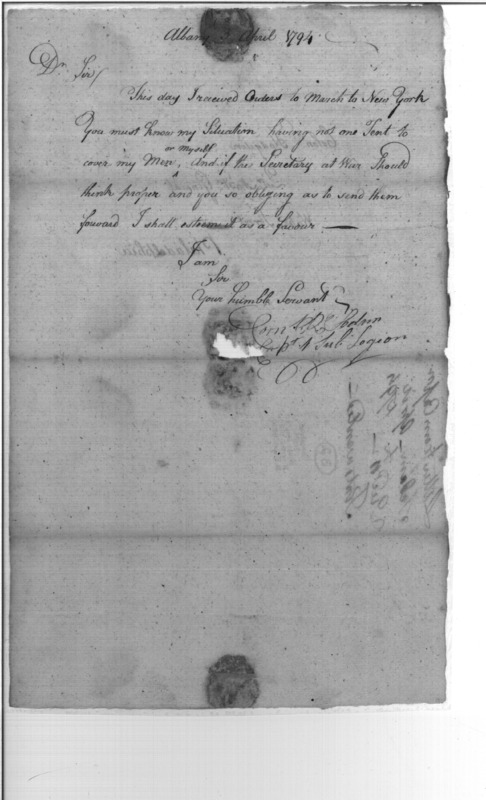 Albany April 1794.
Dr. Sir/
This day I received Orders to March to New York
You must know my Situation having not one Tent to
or myself
cover my Men, And if the Secretary at War Should
think proper and you so obliging as to send them
forward I shall esteem it as a favour —
I am
Sir
Your humble Servant
Capt. 4 Sub Legion
Philadelphia